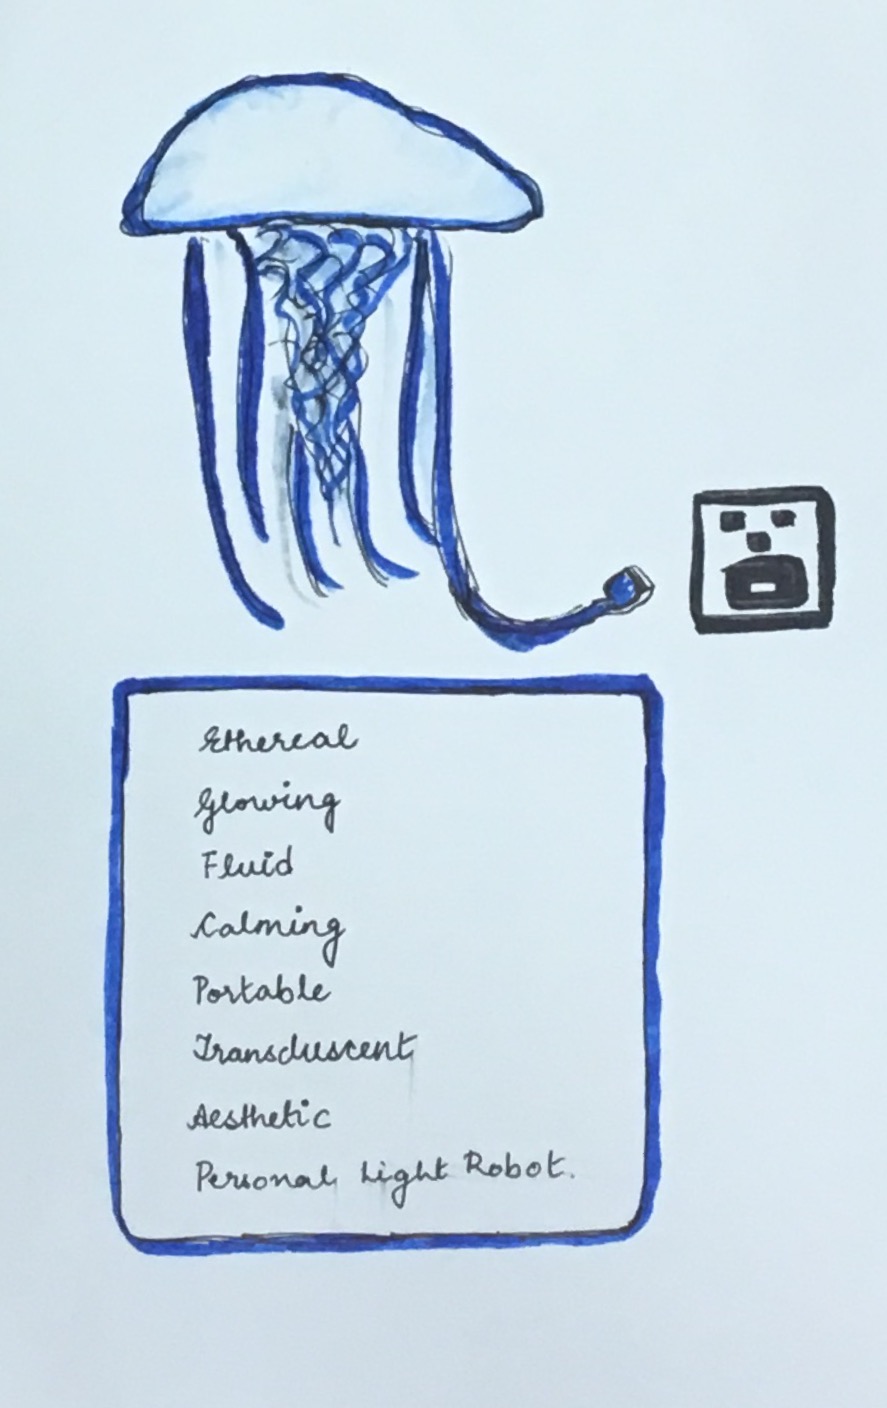 Ethereal
Glowing
Fluid
Calming
Portable
Transcluscent
Aesthetic
Personal Light Robot.